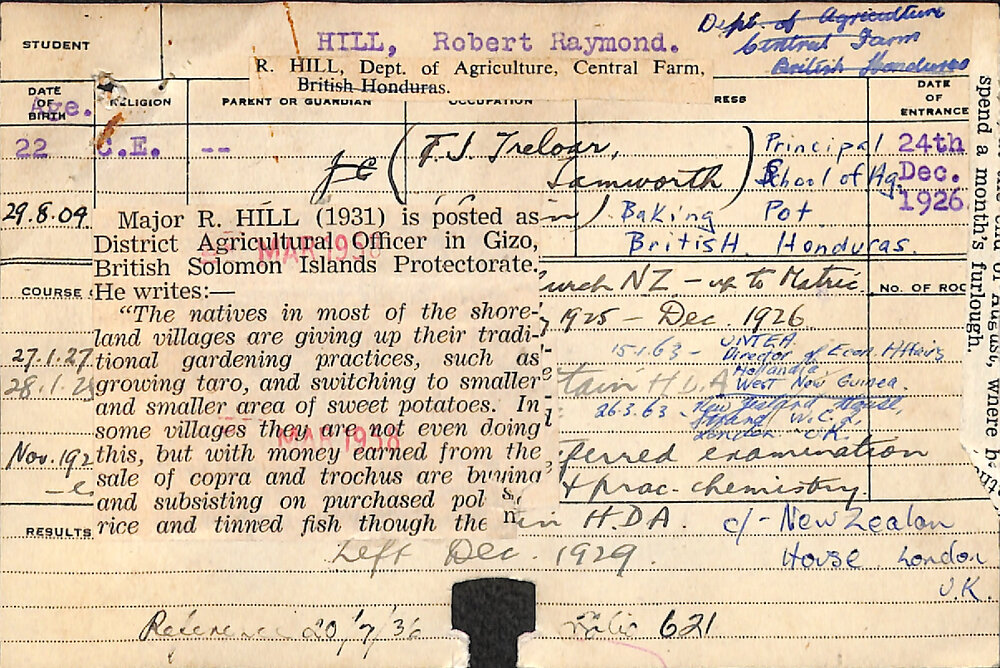 STUDENT
HILL, Robert Raymond.
Dept. of Agriculture
Central Farm
British Honduras
R. HILL, Dept. of Agriculture, Central Farm,
British Honduras.
DATE OF BIRTH
Age.
RELIGION
PARENT OR GUARDIAN
OCCUPATION
RESS
DATE OF ENTRANCE
22
C.E.
--
(T. J. Treloar,
Samworth)
Principal
School of Ag.
Baking Pot
British Honduras.
24th
Dec.
1926
29.8.09
Major R. HILL (1931) is posted as
District Agricultural Officer in Gizo,
British Solomon Islands Protectorate.
He writes:—
MAR 1958
"The natives in most of the shore-
land villages are giving up their tradi-
tional gardening practices, such as
growing taro, and switching to smaller
and smaller area of sweet potatoes. In
some villages they are not even doing
this, but with money earned from the
sale of copra and trochus are buying
and subsisting on purchased pol
rice and tinned fish though the
MAR 1958
COURSE
urch NZ - up to Matric
NO. OF ROO
1925 - Dec. 1926
27.1.27
15.1.63 - UNTEA
Director of Econ Affairs
Hollandia
West New Guinea.
28.1.2
tain H.D.A
26.3.63 - New Zealand House,
Strand W.C.2.
London U.K.
Nov. 192
ferred examination
& prac. chemistry.
RESULTS
in H.D.A.
c/- New Zealan
House London
U.K.
Left Dec. 1929.
Reference 20/7/36
621
spend a month's furlough.
of August, where he